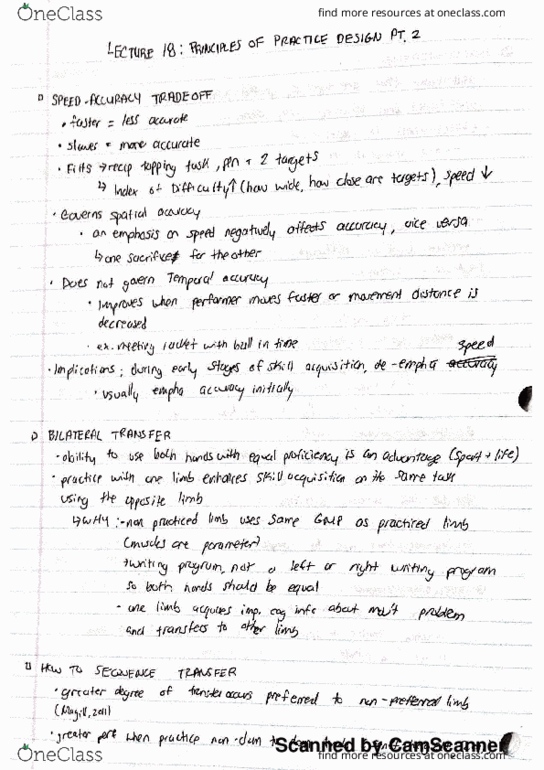 OneClass
find more resources at oneclass.com
LECTURE 18: PRINCIPLES OF PRACTICE DESIGN PT. 2
SPEED-ACCURACY TRADEOFF
• faster = less accurate
• slower = more accurate
• Fitts → recip tapping task, pen + 2 targets
↳ Index of Difficulty↑ (how wide, how close are targets), speed ↓
• Governs spatial accuracy
• an emphasis on speed negatively affects accuracy, vice versa
↳ one sacrifices for the other
• Does not govern Temporal accuracy
• Improves when performer moves faster or movement distance is
decreased
• ex. meeting racket with ball in time
speed
• Implications; during early stages of skill acquisition, de-empha accuracy
• usually empha accuracy initially
BILATERAL TRANSFER
• ability to use both hands with equal proficiency is an advantage (sport + life)
• practice with one limb enhances skill acquisition on the same task
using the opposite limb
↳ WHY: - non practiced limb uses same GMP as practiced limb
(muscles are parameter)
→ writing program, not a left or right writing program
so both hands should be equal
- one limb acquires imp. cog info about mov't problem
and transfers to other limb
HOW TO SEQUENCE TRANSFER
• greater degree of transfer occurs preferred to non-preferred limb
(Magill, 2011)
• greater perf when practice non-dom to dom
Scanned by CamScanner
OneClass
find more resources at oneclass.com